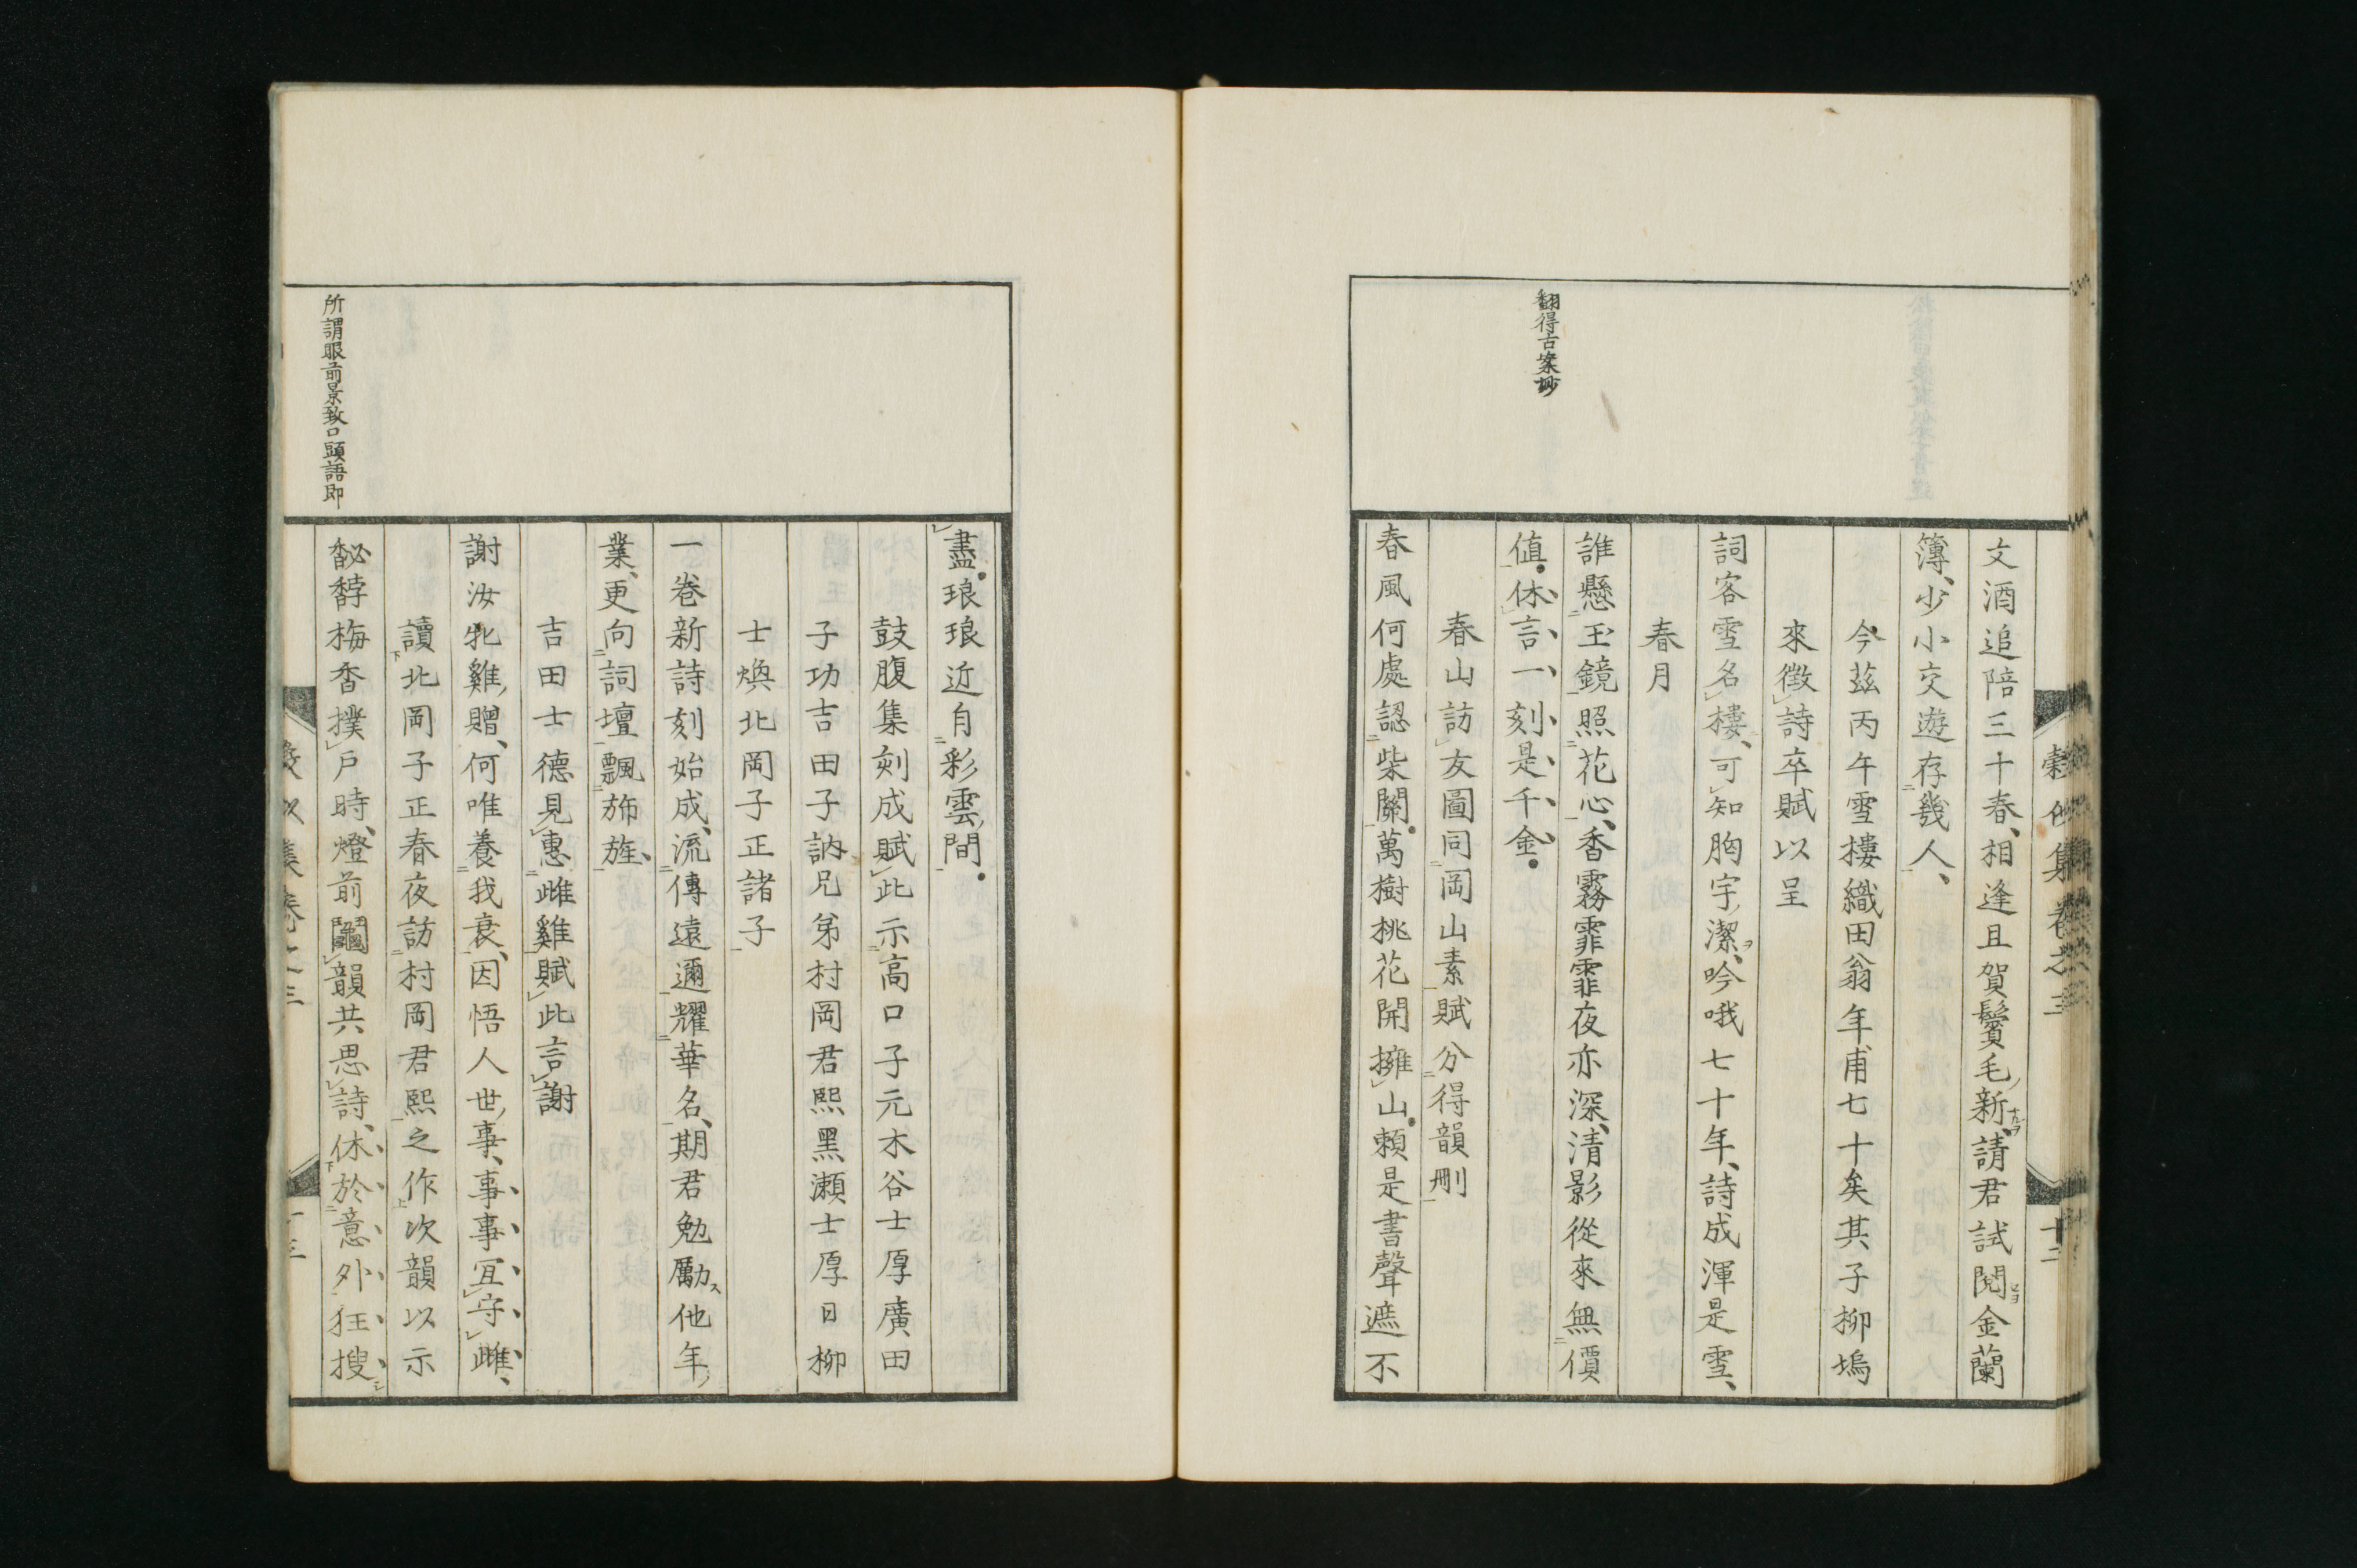 文酒追陪三十春、相逢且賀鬢毛新、請君試閱金蘭
簿、少小交遊存幾人、
今茲丙午雪樓織田翁年甫七十矣其子柳塢
來徵詩卒賦以呈
詞客雪名樓、可知胸宇潔、吟哦七十年、詩成渾是雪、
春月
翻得古案妙
誰懸玉鏡照花心、香霧霏霏夜亦深、清影從來無價
值。休言一刻是千金。
春山訪友圖同岡山素賦分得韻刪
春風何處認柴關。萬樹桃花開擁山。賴是書聲遮不
盡。琅琅近自彩雲間。
鼓腹集刻成賦此示高口子元木谷士厚廣田
子功吉田子訥兄弟村岡君熙黑瀨士厚日柳
士煥北岡子正諸子
一卷新詩刻始成、流傳遠邇耀華名、期君勉勵他年
業、更向詞壇飄旆旌、
吉田士德見惠雌雞賦此言謝
謝汝牝雞贈、何唯養我衰、因悟人世事、事事宜守雌、
讀北岡子正春夜訪村岡君熙之作次韻以示
所謂眼前景致口頭語即
馝馞梅香撲戶時、燈前鬮韻共思詩、休於意外狂搜